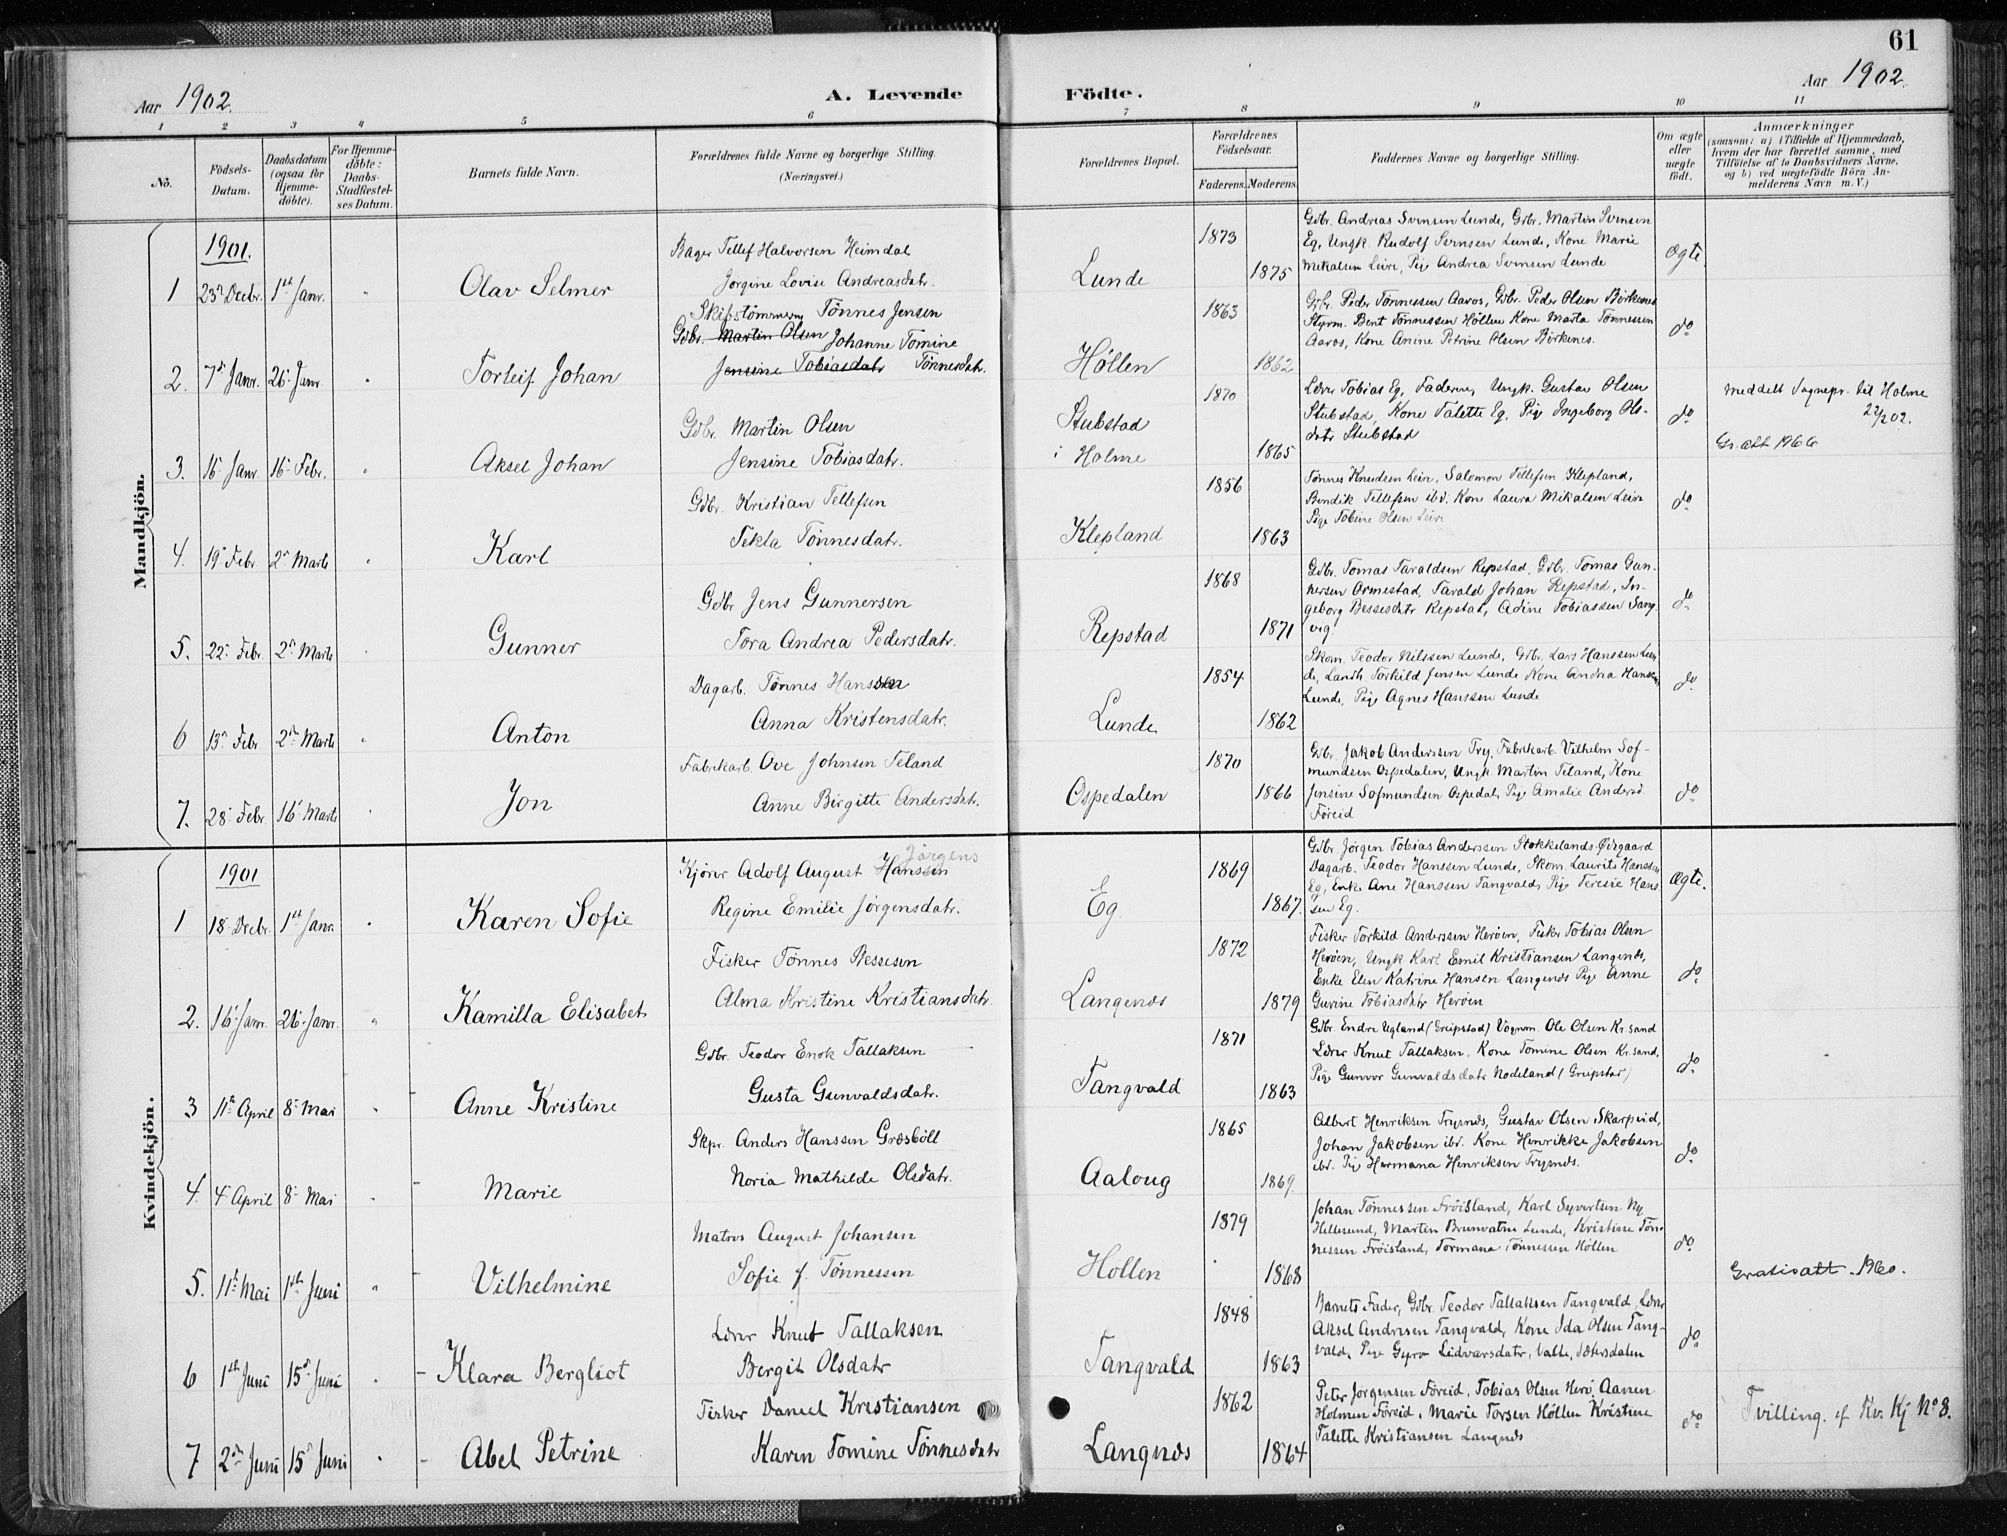 61
Aar 1902.
A. Levende Födte.
Aar 1902.
1 2 3 4 5 6 7 8 9 10 11
No.
Födsels-Datum.
Daabsdatum (ogsaa for Hjemme-döbte).
For Hjemme-döbte: Daabs-Stadfæstelses Datum.
Barnets fulde Navn.
Forældrenes fulde Navne og borgerlige Stilling. (Næringsvei.)
Forældrenes Bopæl.
Forældrenes Födselsaar.
Faderens. Moderens.
Faddernes Navne og borgerlige Stilling.
Om ægte eller uægte födt.
Anmærkninger
(saasom: a) i Tilfælde af Hjemmedaab, hvem der har forrettet samme, med Tilföielse af to Daabsvidners Navne, og b) ved uægtefödte Börn Anmelderens Navn m. V.)
Mandkjön.
1901.
1 23de Decbr. 1ste Janr. " Olav Selmer
Bager Tellef Halvorsen Heimdal
Jørgine Lovise Andreasdatr.
Lunde 1873 1875
Gdbr. Andreas Svensen Lunde, Gdbr. Martin Svensen
Eg, Ungk. Rudolf Svensen Lunde, Kone Marie
Mikalsen Leire, Pige Andrea Svensen Lunde
Ægte
2. 7de Janr. 26 Janr " Torleif Johan
Skibstømmerm Tönnes Jensen
Gdbr. Martin Olsen Johanne Tomine
Jensine Tobiasdatr Tönnesdatr.
Höllen 1863 1862
Gdbr. Peder Tönnessen Aaros, Gdbr. Peder Olsen Birkenes
Styrm. Bent Tönnessen Höllen Kone Marta Tönnessen
Aaros, Kone Anine Petrine Olsen Birkenes.
do
3. 16 Janr 16 Febr. " Aksel Johan
Gdbr. Martin Olsen
Jensine Tobiasdatr.
Stubstad
i Holme 1870 1865
Lærer Tobias Eg, Faderen, Ungk. Gustav Olsen
Stubstad, Kone Talette Eg, Pige Ingeborg Ols-
datr Stubstad
do
Meddelt Sognepr. til Holme
22/2 02.
Gr. att 1966
4. 19 Febr 2den Marts " Karl
Gdbr. Kristian Tellefsen
Tekla Tönnesdatr.
Klepland 1856 1863
Tönnes Knudsen Leire, Salomon Tellefsen Klepland,
Bendik Tellefsen ibd. Kone Laura Mikalsen Leire
Pige Tobine Olsen Leire
do
5. 22 Febr. 2den Marts " Gunner
Gdbr Jens Gunnersen
Tora Andrea Pedersdatr.
Repstad 1868 1871
Gdbr. Tomas Taraldsen Repstad, Gdbr. Tomas Gun-
nersen Ormestad, Tarald Johan Repstad, In-
geborg Bessesdatr Repstad, Adine Tobiassen Sang-
vig.
do
6 13de Febr 2den Marts " Anton
Dagarb. Tönnes Hanssen
Anna Kristensdatr.
Lunde 1854 1862
Skom. Teodor Nilssen Lunde, Gdbr. Lars Hanssen Lun
de, Landh Torkild Jensen Lunde Kone Andrea Hanssen
Lunde, Pige Agnes Hanssen Lunde
do
7. 28 Febr 16 Marts " Jon
Fabrikarb. Ove Johnsen Teland
Anne Birgitte Andersdatr.
Ospedalen 1870 1866
Gdbr. Jakob Anderssen Try, Fabrikarb. Vilhelm Sof-
mundsen Ospedalen, Ungk Martin Teland, Kone
Jensine Sofmundsen Ospedal, Pige Amalie Andersd
Föreid
do
Kvindekjön.
1901
1 18 Decbr. 1ste Janr. " Karen Sofie
Jørgens
Kjörer Adolf August Hanssen
Regine Emilie Jörgensdatr.
Eg. 1869 1867.
Gdbr Jörgen Tobias Anderssen Stokkelands-Ødegaard
Dagarb. Teodor Hanssen Lunde, Skom. Laurits Hanssen
Eg, Enke Ane Hanssen Tangvald, Pige Teresie Hans-
sen Eg.
Ægte.
2. 16 Janr. 26 Janr. " Kamilla Elisabet
Fisker Tönnes Bessesen
Alma Kristine Kristiansdatr.
Langenes 1872 1879
Fisker Torkild Anderssen Heröen, Fisker Tobias Olsen
Heröen, Ungk Karl Emil Kristiansen Langenes,
Enke Elen Katrine Hansen Langenes Pige Anne
Gurine Tobiasdatr Heröen
do
3 11te April 8 Mai " Anne Kristine
Gdbr. Teodor Enok Tallaksen
Gusta Gunvaldsdatr.
Tangvald 1871 1863
Gdbr. Endre Ugland (Greipstad) Vognm. Ole Olsen Kr.sand
Lærer Knut Tallaksen. Kone Tomine Olsen Kr.sand,
Pige Gunvor Gunvaldsdatr Nodeland (Greipstad)
do
4. 4 April 8 Mai " Marie
Skpr. Anders Hanssen Græsböll
Noria Mathilde Olsdatr.
Aaloug 1865 1869.
Albert Henriksen Trysnes, Gustav Olsen Skarpeid,
Johan Jakobsen ibd. Kone Henrikke Jakobsen
ibd. Pige Hermana Henriksen Trysnes.
do
5. 11te Mai 1ste Juni " Vilhelmine
Matros August Johansen
Sofie f. Tönnessen
Höllen 1879 1868
Johan Tönnessen Fröisland, Karl Syvertsen Ny
Hellesund, Marten Brunvatne Lunde, Kristine Tön-
nessen Fröisland, Tormana Tönnessen Höllen
do
Gratisatt. 1960.
6 1ste Juni 15de Juni " Klara Bergliot
Lærer Knut Tallaksen
Bergit Olsdatr
Tangvald 1848 1863
Barnets Fader, Gdbr. Teodor Tallaksen Tangvald, Lærer
Aksel Andresen Tangvald, Kone Ida Olsen Tang-
vald, Pige Gyro Lidvarsdatr, Valle, Sætersdalen
do
7 2den Juni 15de Juni " Abel Petrine
Fisker Daniel Kristiansen
Karen Tomine Tönnesdatr
Langnes 1862 1864
Peter Jörgensen Föreid, Tobias Olsen Herö, Aanen
Holmen Föreid, Marie Torsen Höllen Kristine
Talette Kristiansen Langnes
do
Tvilling. cf Kv. Kj No 8.